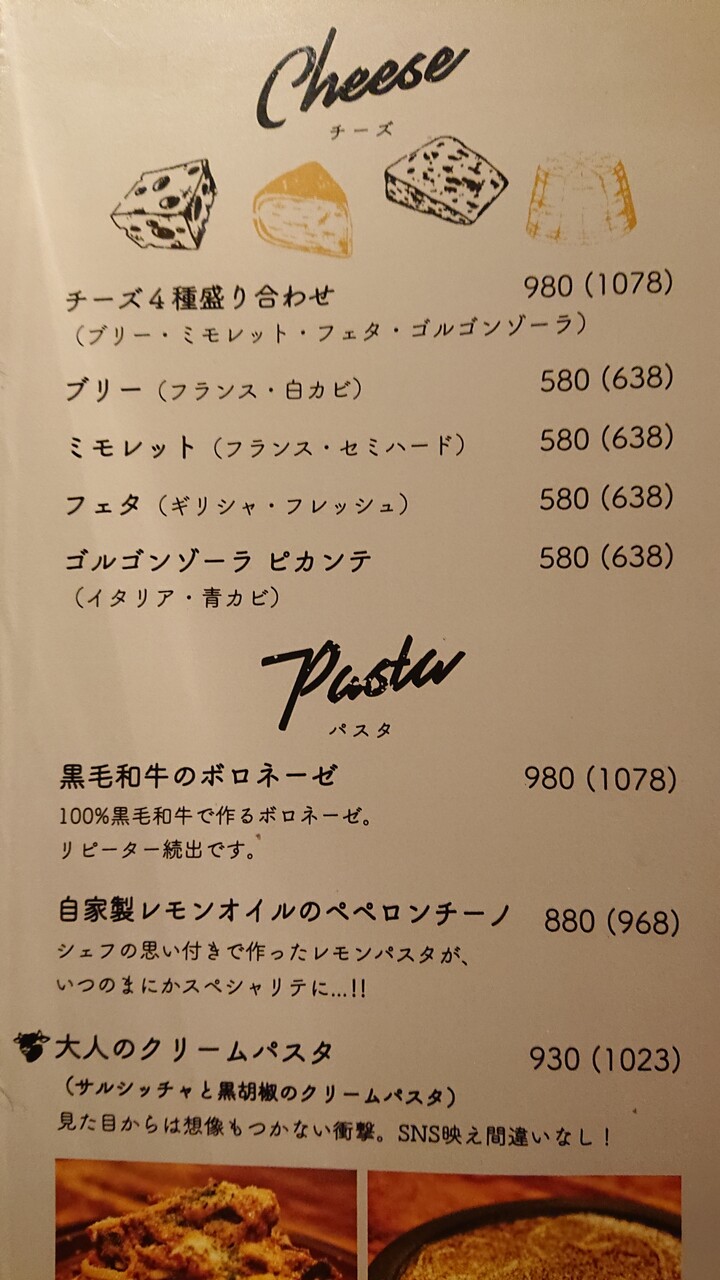 Cheese
チーズ
チーズ4種盛り合わせ 980 (1078)
（ブリー・ミモレット・フェタ・ゴルゴンゾーラ）
ブリー（フランス・白カビ） 580 (638)
ミモレット（フランス・セミハード） 580 (638)
フェタ（ギリシャ・フレッシュ） 580 (638)
ゴルゴンゾーラ ピカンテ 580 (638)
（イタリア・青カビ）
Pasta
パスタ
黒毛和牛のボロネーゼ 980 (1078)
100%黒毛和牛で作るボロネーゼ。
リピーター続出です。
自家製レモンオイルのペペロンチーノ 880 (968)
シェフの思い付きで作ったレモンパスタが、
いつのまにかスペシャリテに...!!
大人のクリームパスタ 930 (1023)
（サルシッチャと黒胡椒のクリームパスタ）
見た目からは想像もつかない衝撃。SNS映え間違いなし！